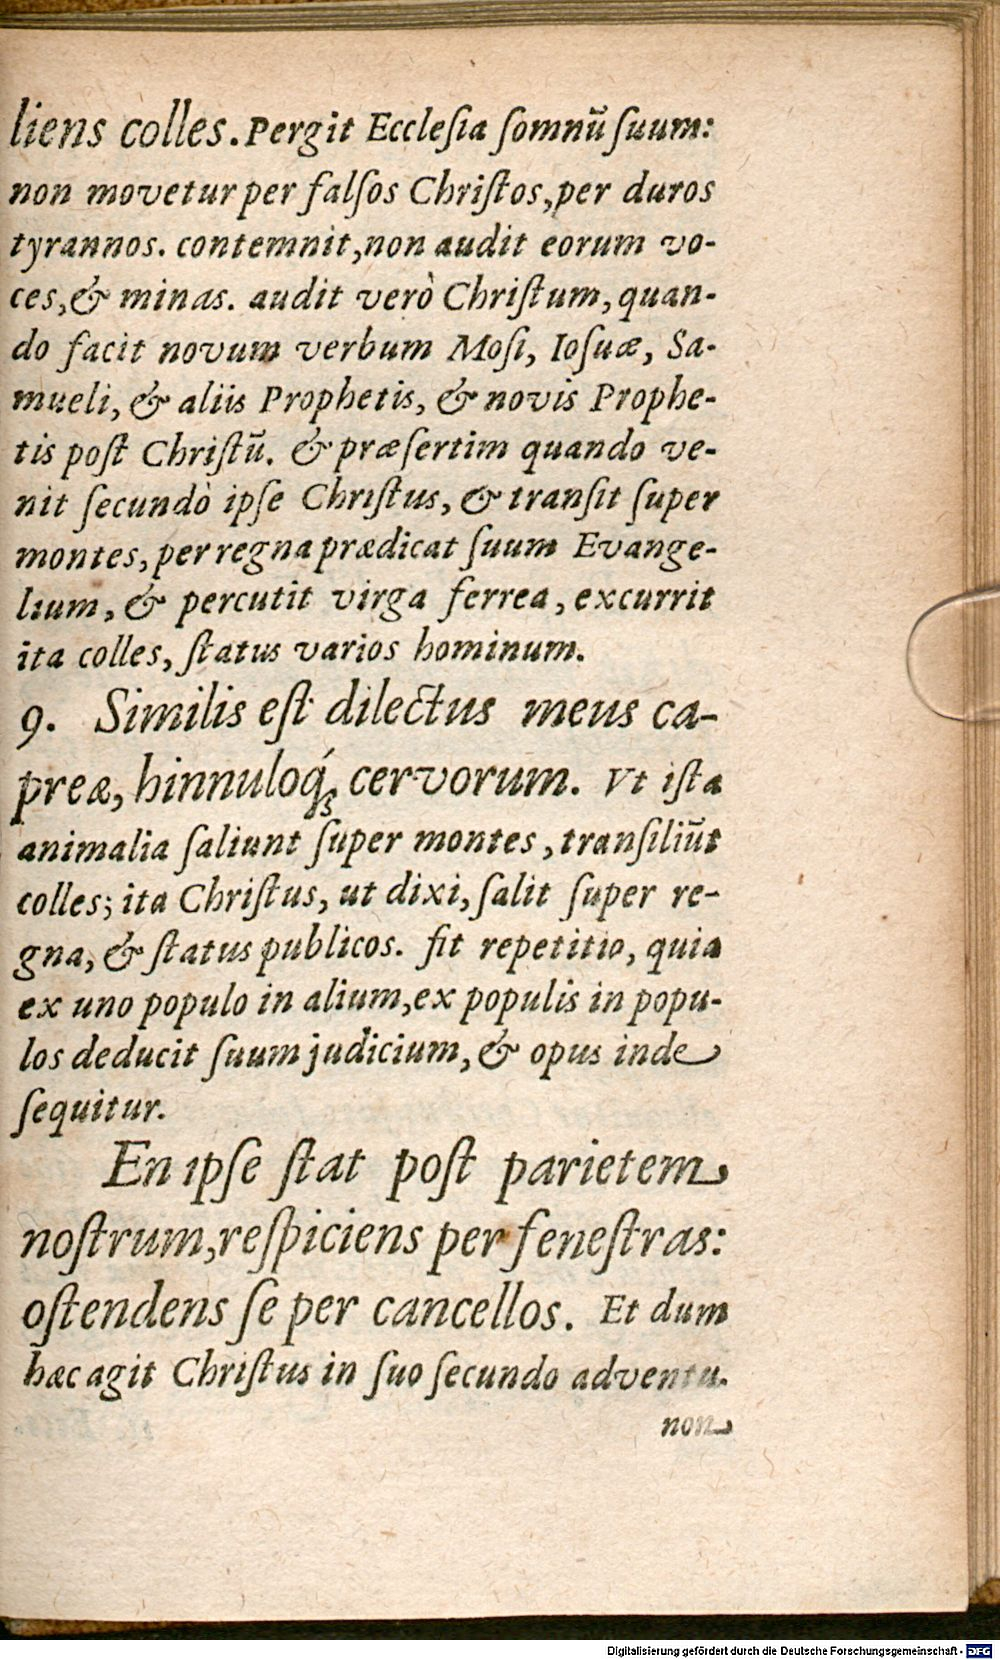 liens colles. Pergit Ecclesia somnū suum:
non movetur per falsos Christos, per duros
tyrannos. contemnit, non audit eorum vo-
ces, & minas. audit verò Christum, quan-
do facit novum verbum Mosi, Iosuæ, Sa-
mueli, & aliis Prophetis, & novis Prophe-
tis post Christū. & præsertim quando ve-
nit secundò ipse Christus, & transit super
montes, per regna prædicat suum Evange-
lium, & percutit virga ferrea, excurrit
ita colles, status varios hominum.
9. Similis est dilectus meus ca-
preæ, hinnuloq́; cervorum. Vt ista
animalia saliunt super montes, transiliūt
colles; ita Christus, ut dixi, salit super re-
gna, & status publicos. fit repetitio, quia
ex uno populo in alium, ex populis in popu-
los deducit suum judicium, & opus inde
sequitur.
En ipse stat post parietem
nostrum, respiciens per fenestras:
ostendens se per cancellos. Et dum
hæc agit Christus in suo secundo adventu.
non
Digitalisierung gefördert durch die Deutsche Forschungsgemeinschaft - DFG